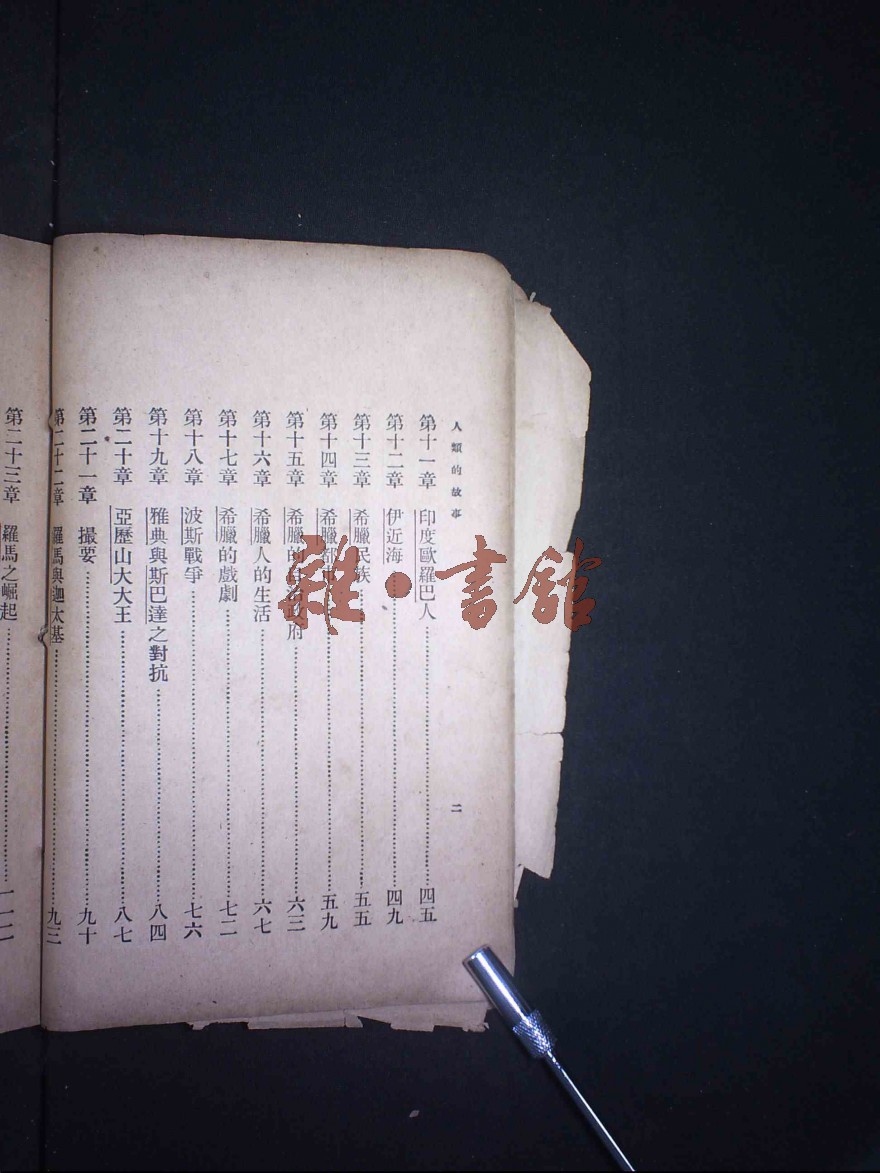 人類的故事
二
第十一章 印度歐羅巴人……四五
第十二章 伊近海……四九
第十三章 希臘民族……五五
第十四章 希臘都市……五九
第十五章 希臘的自治政府……六三
第十六章 希臘人的生活……六七
第十七章 希臘的戲劇……七二
第十八章 波斯戰爭……七六
第十九章 雅典與斯巴達之對抗……八四
第二十章 亞歷山大大王……八七
第二十一章 撮要……九十
第二十二章 羅馬與迦太基……九三
第二十三章 羅馬之崛起……一一二
雜·書館